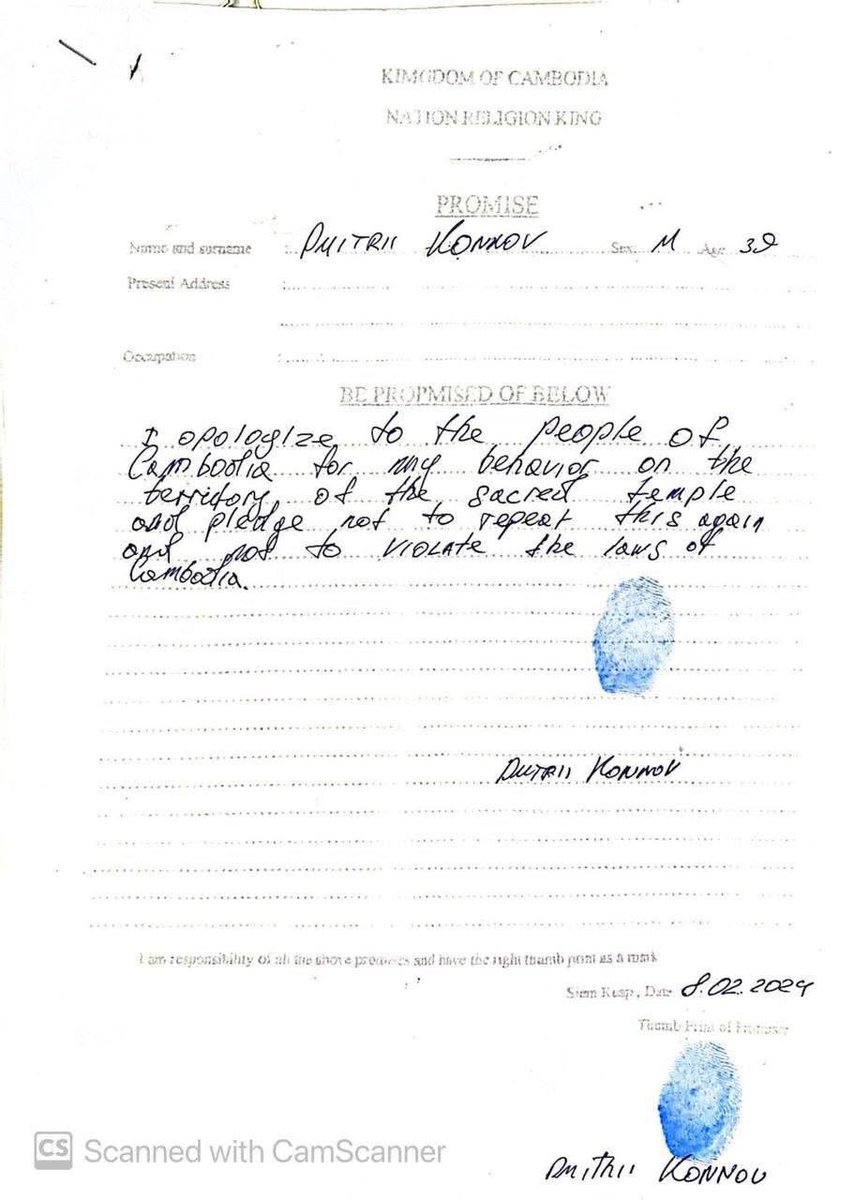 KIMGDOM OF CAMBODIA
NATION RELIGION KING
PROMISE
Name and surname : DMITRII KONNOV Sex: M Age 39
Present Address :
Occupation :
BE PROPMISED OF BELOW
I apologize to the people of
Cambodia for my behavior on the
territory of the sacred temple
and pledge not to repeat this again
and not to violate the laws of
Cambodia.
DMITRII KONNOV
I am responsibility of all the above promises and have the right thumb print as a mark
Siem Reap, Date 8.02.2024
Thumb Print of Promiser
DMITRII KONNOV
CS Scanned with CamScanner